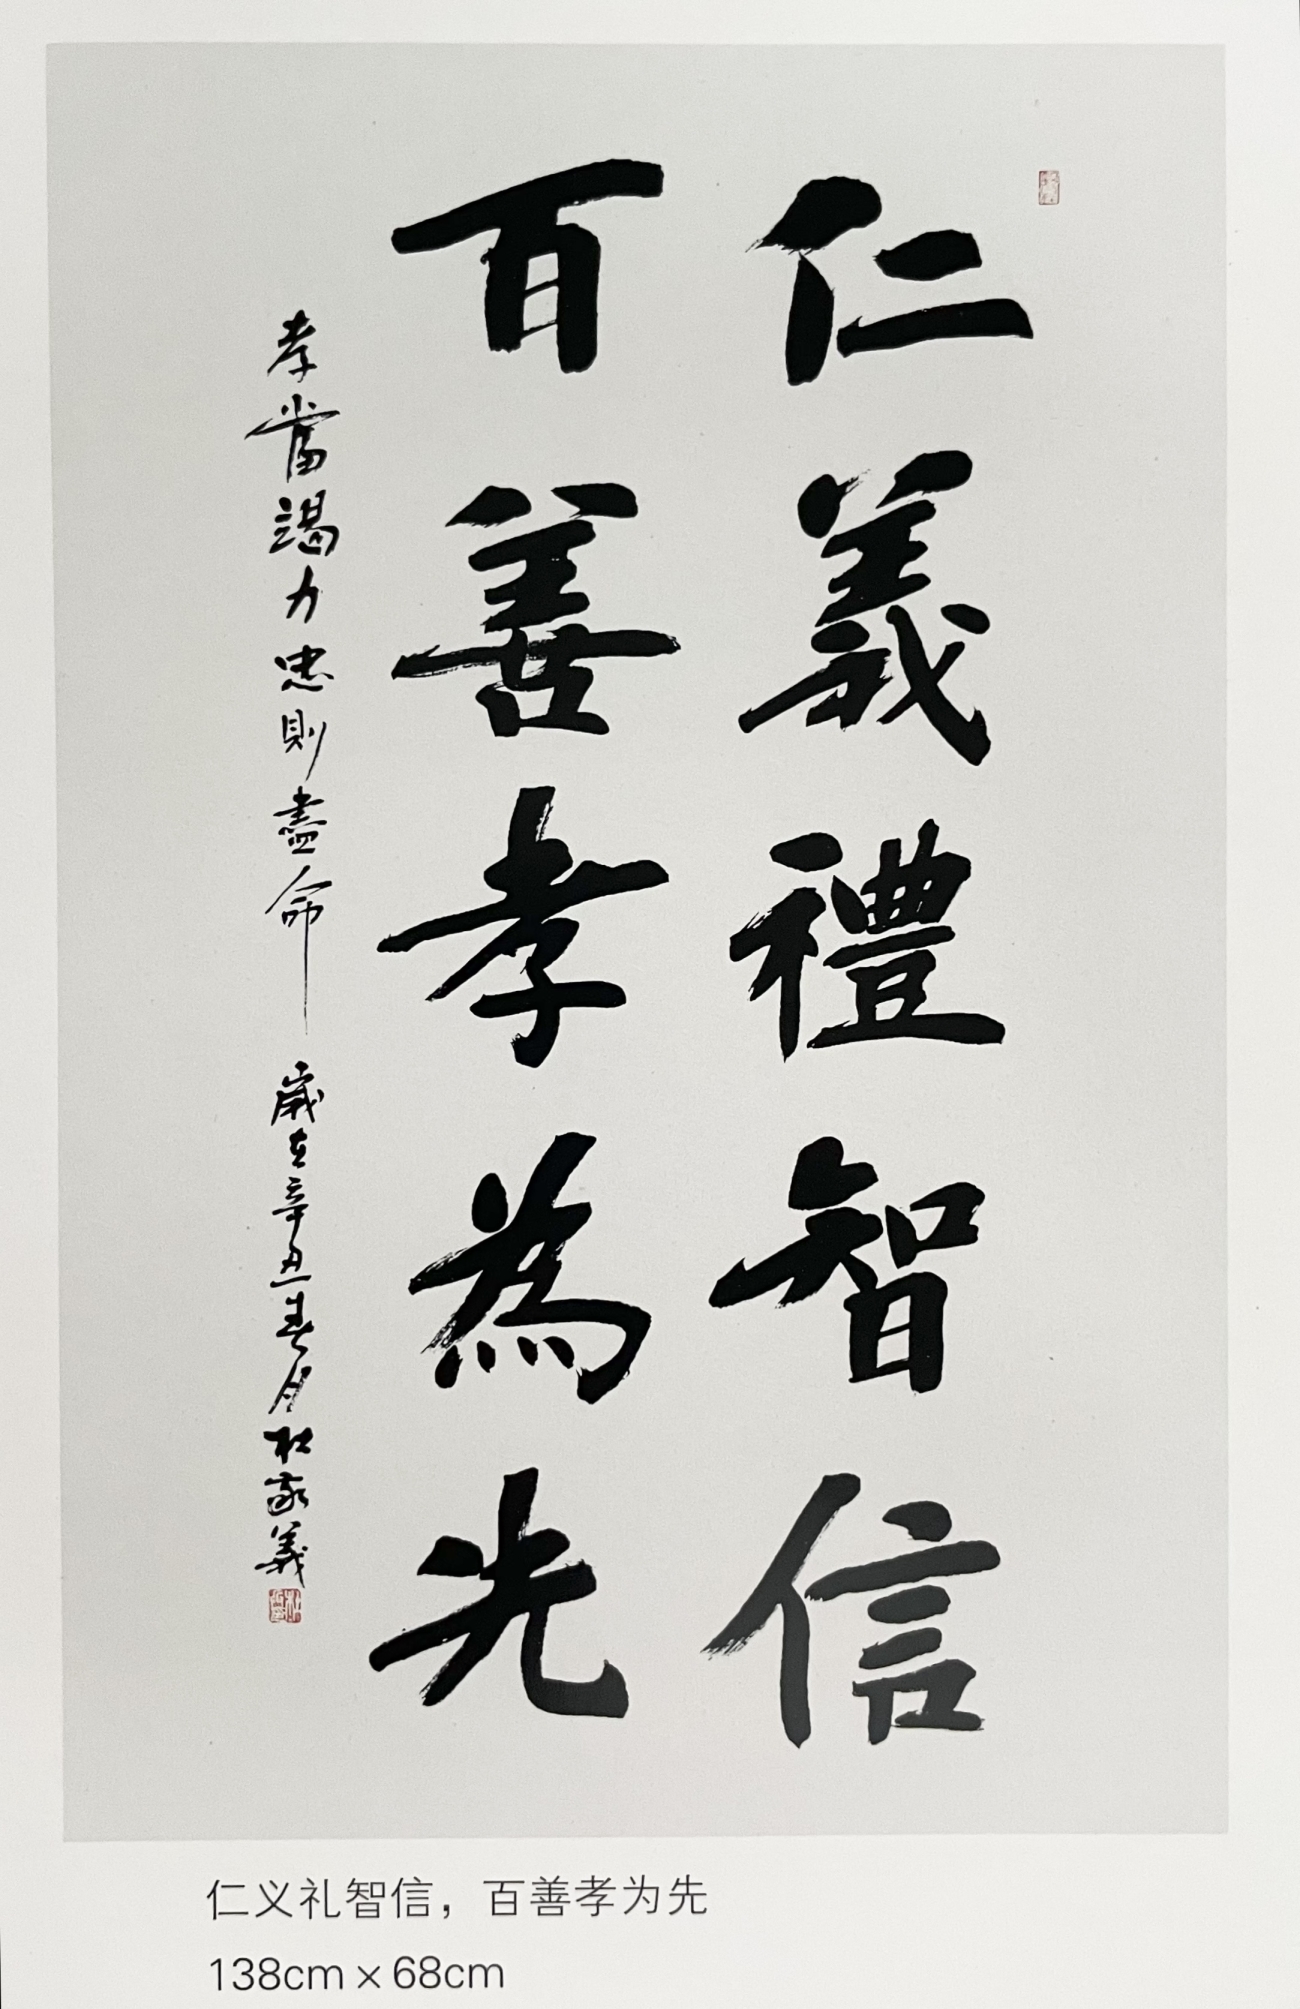 仁義禮智信
百善孝為先
孝當竭力忠則盡命
歲在辛丑春月杜家義
仁义礼智信，百善孝为先
138cm×68cm